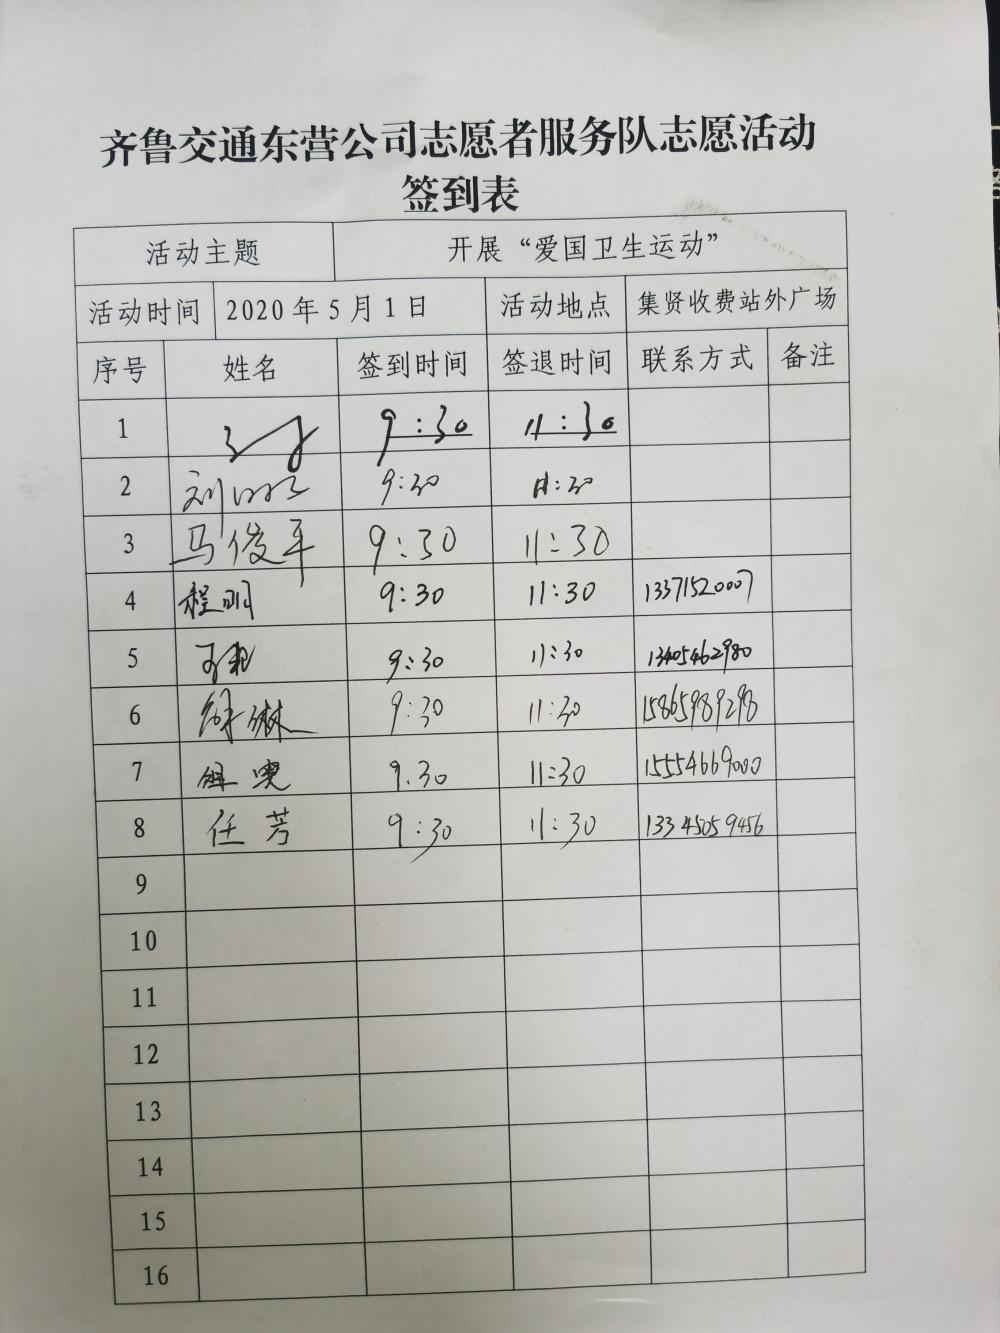 齐鲁交通东营公司志愿者服务队志愿活动
签到表
活动主题 开展“爱国卫生运动”
活动时间 2020年5月1日 活动地点 集贤收费站外广场
序号 姓名 签到时间 签退时间 联系方式 备注
1 9:30 11:30
2 刘 9:30 11:30
3 马俊平 9:30 11:30
4 程明 9:30 11:30 13371520007
5 9:30 11:30 13405462980
6 徐琳 9:30 11:30 15865989298
7 9.30 11:30 15554669000
8 任芳 9:30 11:30 13345059456
9
10
11
12
13
14
15
16